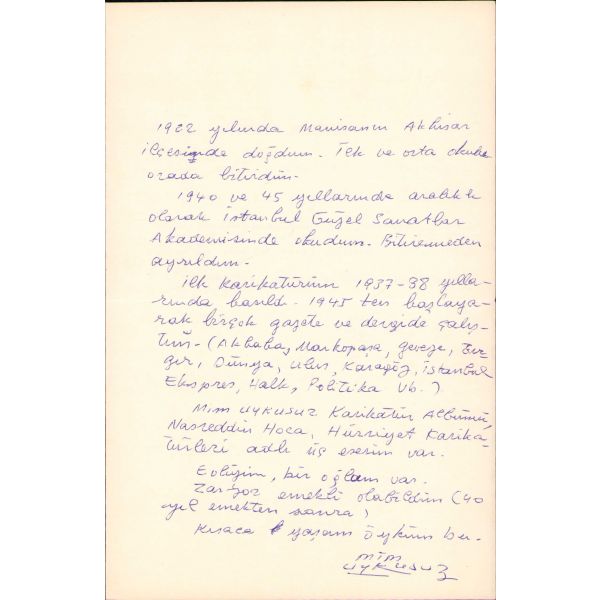 1922 yılında Manisanın Akhisar
ilçesinde doğdum. İlk ve orta okulu
orada bitirdim.
1940 ve 45 yıllarında aralıklı
olarak İstanbul Güzel Sanatlar
Akademisinde okudum. Bitiremeden
ayrıldım.
İlk Karikatürüm 1937-38 yılla-
rında basıldı. 1945 ten başlaya-
rak birçok gazete ve dergide çalış-
tım. (Akbaba, Markopaşa, Geveze, 
Dünya, Ulus, Karagöz, İstanbul
Ekspres, Halk, Politika vb.)
Mim Uykusuz Karikatür Albümü,
Nasreddin Hoca, Hürriyet Karika-
türleri adlı üç eserim var.
Evliyim, bir oğlum var.
Zar zor emekli olabildim (40
yıl emekten sonra)
Kısaca yaşam öyküm bu.
mim
uykusuz